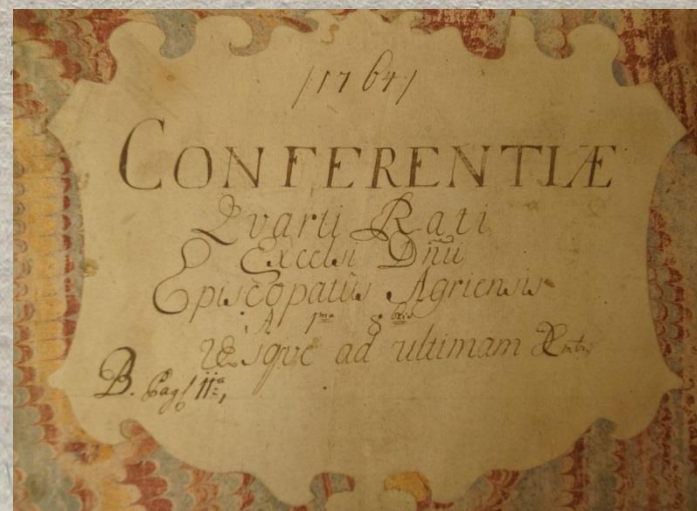 /1764/
CONFERENTIÆ
Qvarti Rati
Excelsi Dñii
Episcopatûs Agriensis
A 1ma 8bris
Usque ad ultimam Xmbris
B. Pag